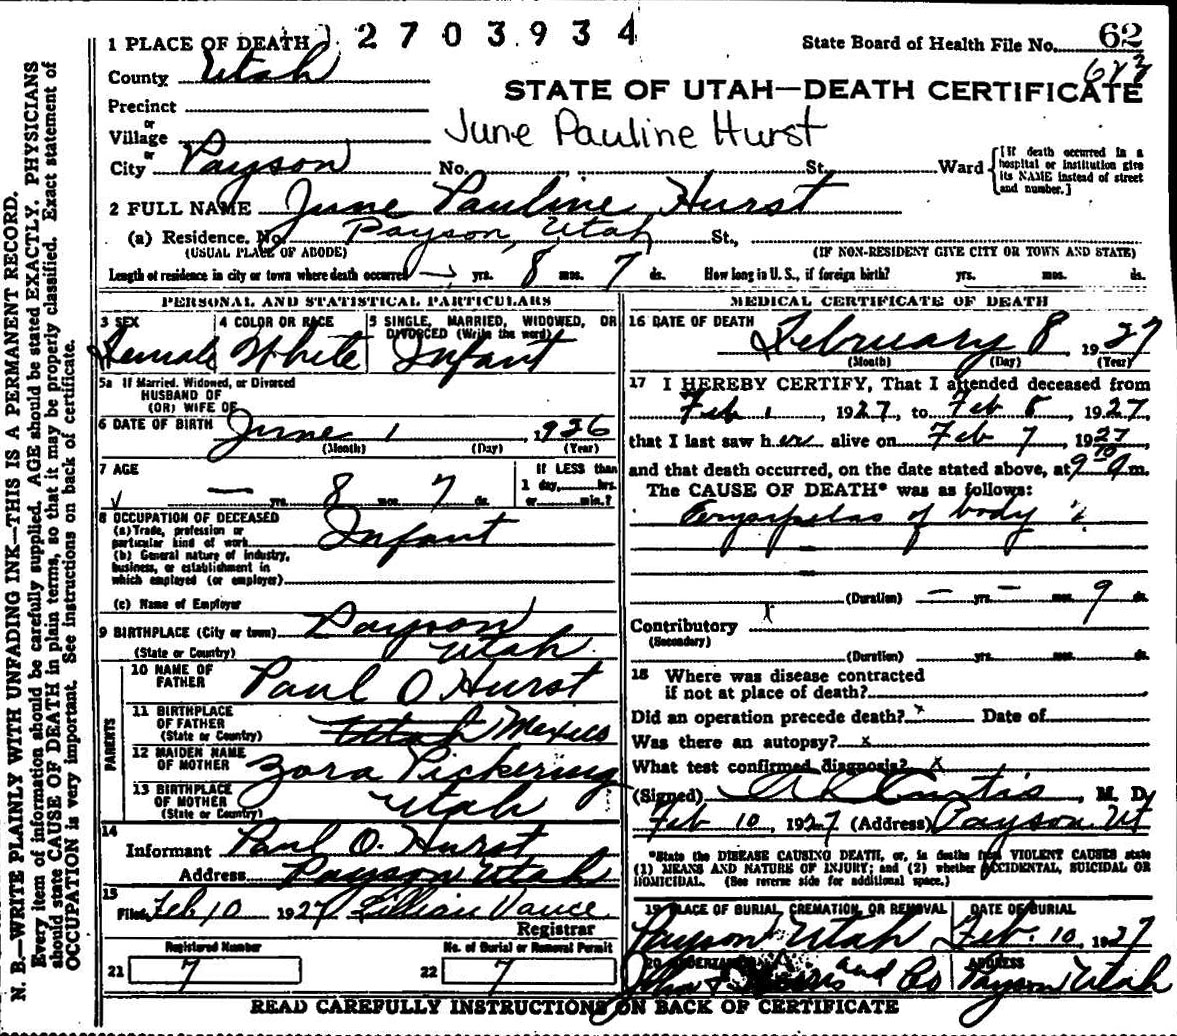 2703934
1 PLACE OF DEATH
State Board of Health File No. 62
County Utah
STATE OF UTAH—DEATH CERTIFICATE
Precinct
or
Village
June Pauline Hurst
or
City Payson No. St. Ward [If death occurred in a hospital or institution give its NAME instead of street and number.]
2 FULL NAME June Pauline Hurst
(a) Residence. No. Payson, Utah St.,
(USUAL PLACE OF ABODE) (IF NON-RESIDENT GIVE CITY OR TOWN AND STATE)
Length of residence in city or town where death occurred — yrs. 8 mos. 7 ds. How long in U. S., if foreign birth? yrs. mos. ds.
PERSONAL AND STATISTICAL PARTICULARS
3 SEX 4 COLOR OR RACE 5 SINGLE, MARRIED, WIDOWED, OR DIVORCED (Write the word)
Female White Infant
5a If Married, Widowed, or Divorced
HUSBAND OF
(OR) WIFE OF
6 DATE OF BIRTH June 1, 1926
(Month) (Day) (Year)
7 AGE If LESS than
— yrs. 8 mos. 7 ds. 1 day, hrs.
or min.?
8 OCCUPATION OF DECEASED
(a) Trade, profession or
particular kind of work Infant
(b) General nature of industry,
business, or establishment in
which employed (or employer)
(c) Name of Employer
9 BIRTHPLACE (City or town) Payson
(State or Country) Utah
PARENTS
10 NAME OF
FATHER Paul O Hurst
11 BIRTHPLACE
OF FATHER
(State or Country) Utah Mexico
12 MAIDEN NAME
OF MOTHER Zora Pickering
13 BIRTHPLACE
OF MOTHER
(State or Country) Utah
14
Informant Paul O. Hurst
Address Payson Utah
15
Filed Feb 10 1927 Lillian Vance
Registrar
Registered Number No. of Burial or Removal Permit
21 7 22 7
MEDICAL CERTIFICATE OF DEATH
16 DATE OF DEATH
February 8 1927
(Month) (Day) (Year)
17 I HEREBY CERTIFY, That I attended deceased from
Feb 1, 1927, to Feb 8, 1927,
that I last saw her alive on Feb 7 1927
and that death occurred, on the date stated above, at 9 10 A m.
The CAUSE OF DEATH* was as follows:
Erysipelas of body
(Duration) — yrs. — mos. 9 ds.
Contributory x
(Secondary)
(Duration) yrs. mos. ds.
18 Where was disease contracted
if not at place of death?
Did an operation precede death? x Date of
Was there an autopsy? x
What test confirmed diagnosis? x
(Signed) Curtis, M. D.
Feb 10, 1927 (Address) Payson Ut
*State the DISEASE CAUSING DEATH, or, in deaths from VIOLENT CAUSES state
(1) MEANS AND NATURE OF INJURY; and (2) whether ACCIDENTAL, SUICIDAL OR
HOMICIDAL. (See reverse side for additional space.)
19 PLACE OF BURIAL, CREMATION, OR REMOVAL DATE OF BURIAL
Payson Utah Feb. 10, 1927
20 UNDERTAKER ADDRESS
and Co Payson Utah
READ CAREFULLY INSTRUCTIONS ON BACK OF CERTIFICATE
N. B.—WRITE PLAINLY WITH UNFADING INK—THIS IS A PERMANENT RECORD.
Every item of information should be carefully supplied. AGE should be stated EXACTLY. PHYSICIANS
should state CAUSE OF DEATH in plain terms, so that it may be properly classified. Exact statement of
OCCUPATION is very important. See instructions on back of certificate.